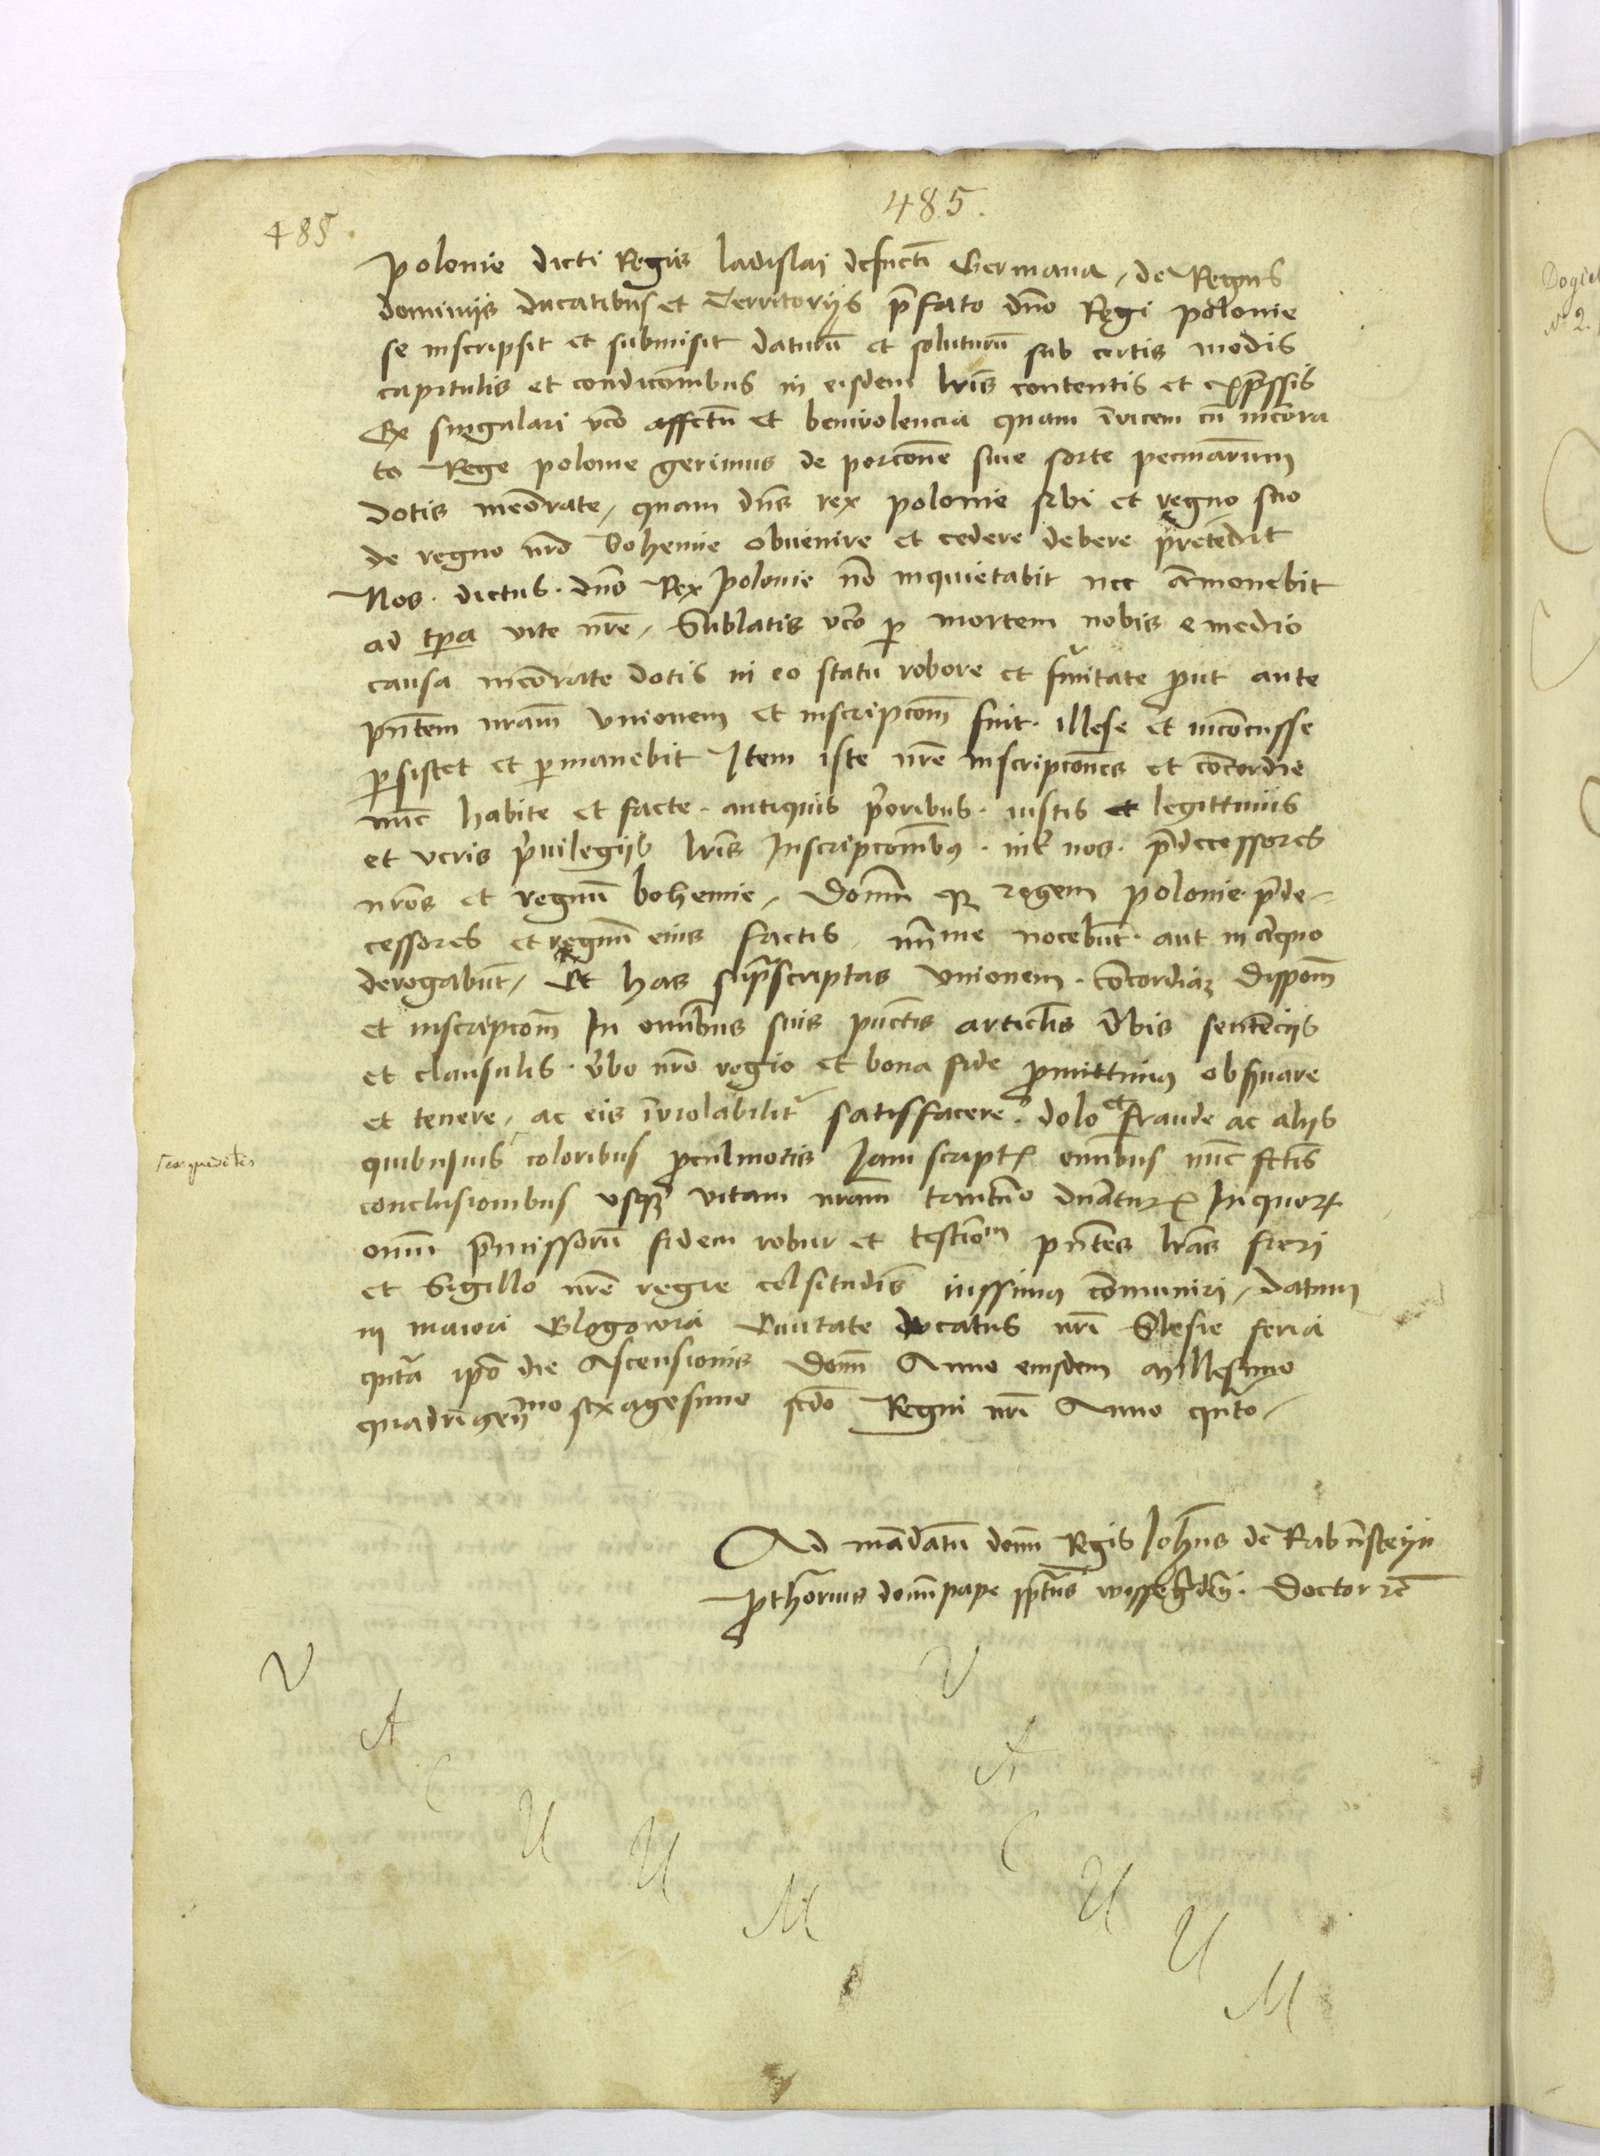 485.
485.
polonie dicti Regis ladislaj defuncti Germana, de Regnis
dominijs ducatibus et Territorijs p̄fato dn̄o Regi polonie
se inscripsit et submisit daturū et soluturū sub certis modis
capitulis et condiconibus in eisdem lrīs contentis et exp̄ssis
Ex singulari vo affectu et benivolencia quam īvicem cū memora
to Rege polonie gerimus de porcone sive sorte pecuniarum
dotis memorate, quam dn̄s rex polonie sibi et regno suo
de regno nr̄o bohemie obuenire et cedere debere pretēdit
Nos. dictus. dn̄s Rex polonie nō inquietabit nec āmonebit
ad tp̄a vite nr̄e, Sublatis vo p mortem nobis e medio
causa memorate dotis in eo statu robore et firmitate put ante
pn̄tem nr̄am vnionem et inscripcom̄ fuit. illese et inconcusse
psistet et pmanebit Item iste nr̄e inscripcones et concordie
nūc habite et facte. antiquis p̄oribus. iustis et legittimis
et veris p̄uilegijs lrīs Inscripcomb9. int nos. p̄decessores
nr̄os et regnū bohemie, domm q regem polonie. p̄de-
cessores et regnū eius factis, mīme nocebūt. aut in aliquo
derogabūt, Et has sup̄scriptas vnionem. concordiaz dispom̄
et inscripcom̄ In omībus suis pūctis articlis v̄bis sentēcijs
et clausulis. v̄bo nr̄o regio et bona fide pmittim9 obs̄uare
et tenere, ac eis īviolabilit satisfacere. dolo et fraude ac alijs
quibusuis coloribus pculmotis Iam script omībus nūc fctis
conclusionibus vsq vitam nr̄am tantūo duratur In quor
om̄m p̄missorū fidem robur et testiom pn̄tes lrās fieri
et Sigillo nr̄e regie celsitudīs iussim9 cōmuniri, datum
in maiori Glogovia Ciuitate ducatus nr̄i Slesie feria
qnta ipō die Ascensionis Dom̄ Anno eiusdem millesimo
quadringen̄mo sexagesimo scdo Regni nr̄i Anno qnto,
Ad mādatū dom̄ Regis Joh̄nes de Rabn̄steyn
pthorius dom̄ pape ppt̄us wissegrdn̄. Doctor rc
V A C U U M
V A C U U M